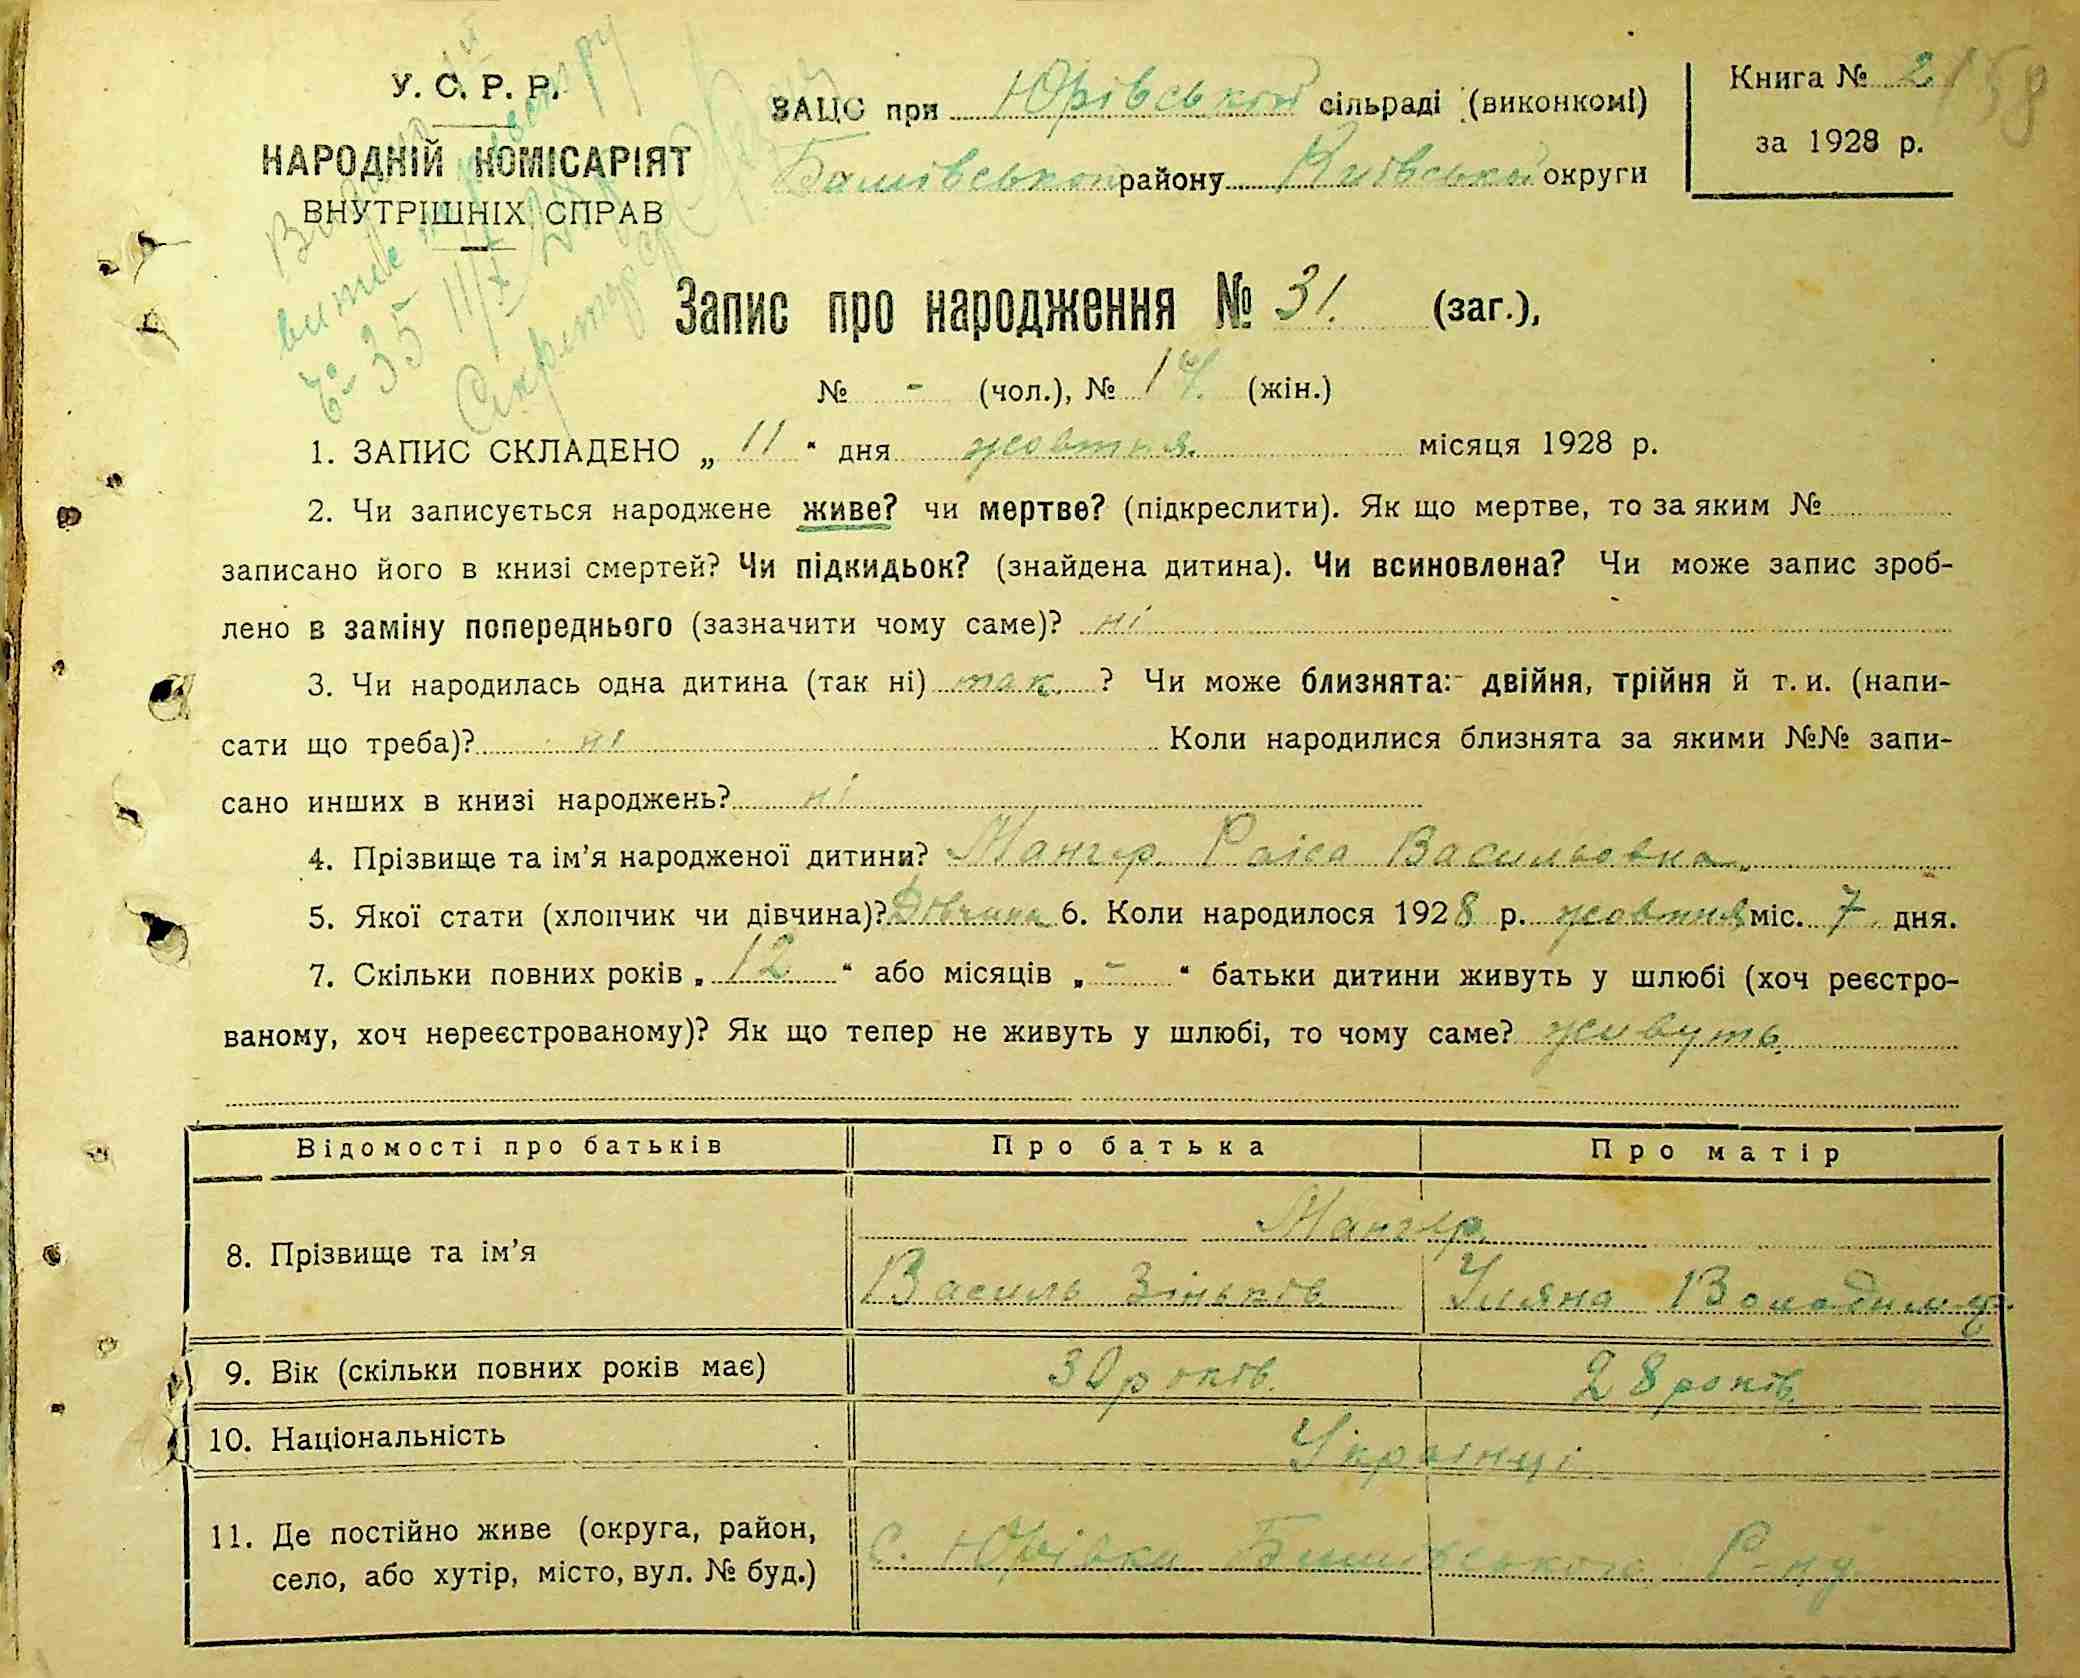 У. С. Р. Р.
НАРОДНІЙ КОМІСАРІЯТ
ВНУТРІШНІХ СПРАВ
Видано
витяг
№ 35 11/X
Секретар
ЗАЦС при Юрівській сільраді (виконкомі)
району Київської округи
Книга № 2
за 1928 р.
158
Запис про народження № 31. (заг.),
№ - (чол.), № 14. (жін.)
1. ЗАПИС СКЛАДЕНО „ 11 “ дня жовтня. місяця 1928 р.
2. Чи записується народжене живе? чи мертве? (підкреслити). Як що мертве, то за яким №
записано його в книзі смертей? Чи підкидьок? (знайдена дитина). Чи всиновлена? Чи може запис зроб-
лено в заміну попереднього (зазначити чому саме)? ні
3. Чи народилась одна дитина (так ні) так ? Чи може близнята:- двійня, трійня й т. и. (напи-
сати що треба)? ні Коли народилися близнята за якими №№ запи-
сано инших в книзі народжень? ні
4. Прізвище та ім’я народженої дитини? Мангер Раіса Васильовна
5. Якої стати (хлопчик чи дівчина)? Дівчина 6. Коли народилося 1928 р. жовтня міс. 7 дня.
7. Скільки повних років „ 12 “ або місяців „ - “ батьки дитини живуть у шлюбі (хоч реєстро-
ваному, хоч нереєстрованому)? Як що тепер не живуть у шлюбі, то чому саме? живуть.
Відомості про батьків Про батька Про матір
Мангер
8. Прізвище та ім’я Василь Зіньків Уляна Володимир.
9. Вік (скільки повних років має) 30 років. 28 років.
10. Національність Українці
11. Де постійно живе (округа, район,
село, або хутір, місто, вул. № буд.) с. Юрівка Бишівського Р-ну